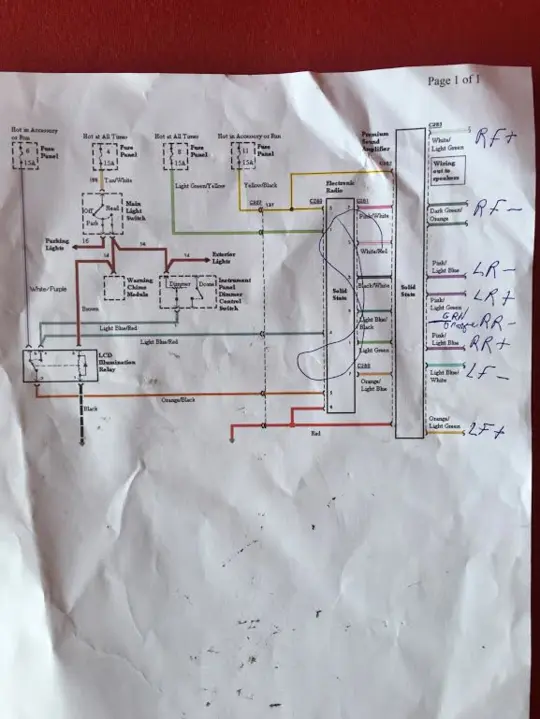 Page 1 of 1
Hot in Accessory
or Run
Hot at All Times
Hot at All Times
Hot in Accessory or Run
Fuse
Panel
15A
4
15A
Fuse
Panel
8
15A
Fuse
Panel
11
15A
Fuse
Panel
Tan/White
Light Green/Yellow
Yellow/Black
Premium
Sound
Amplifier
White/
Light Green
RF+
Wiring
out to
speakers
Electronic
Radio
Off
Park
Head
Main
Light
Switch
Pink/White
Dark Green/
Orange
RF-
Parking
Lights
16
14
14
Exterior
Lights
White/Red
White/Purple
Warning
Chime
Module
Dimmer
Dome
Instrument
Panel
Dimmer
Control
Switch
Solid
State
Black/White
Solid
State
Pink/
Light Blue
LR-
Pink/
Light Green
LR+
Brown
Light Blue/Red
Light Blue/
Black
GRN
Orange RR-
Light Blue/Red
Light Green
Pink/
Light Blue
RR+
LCD
Illumination
Relay
Orange/
Light Blue
Light Blue/
White
LF-
Orange/Black
Black
Red
Orange/
Light Green
LF+